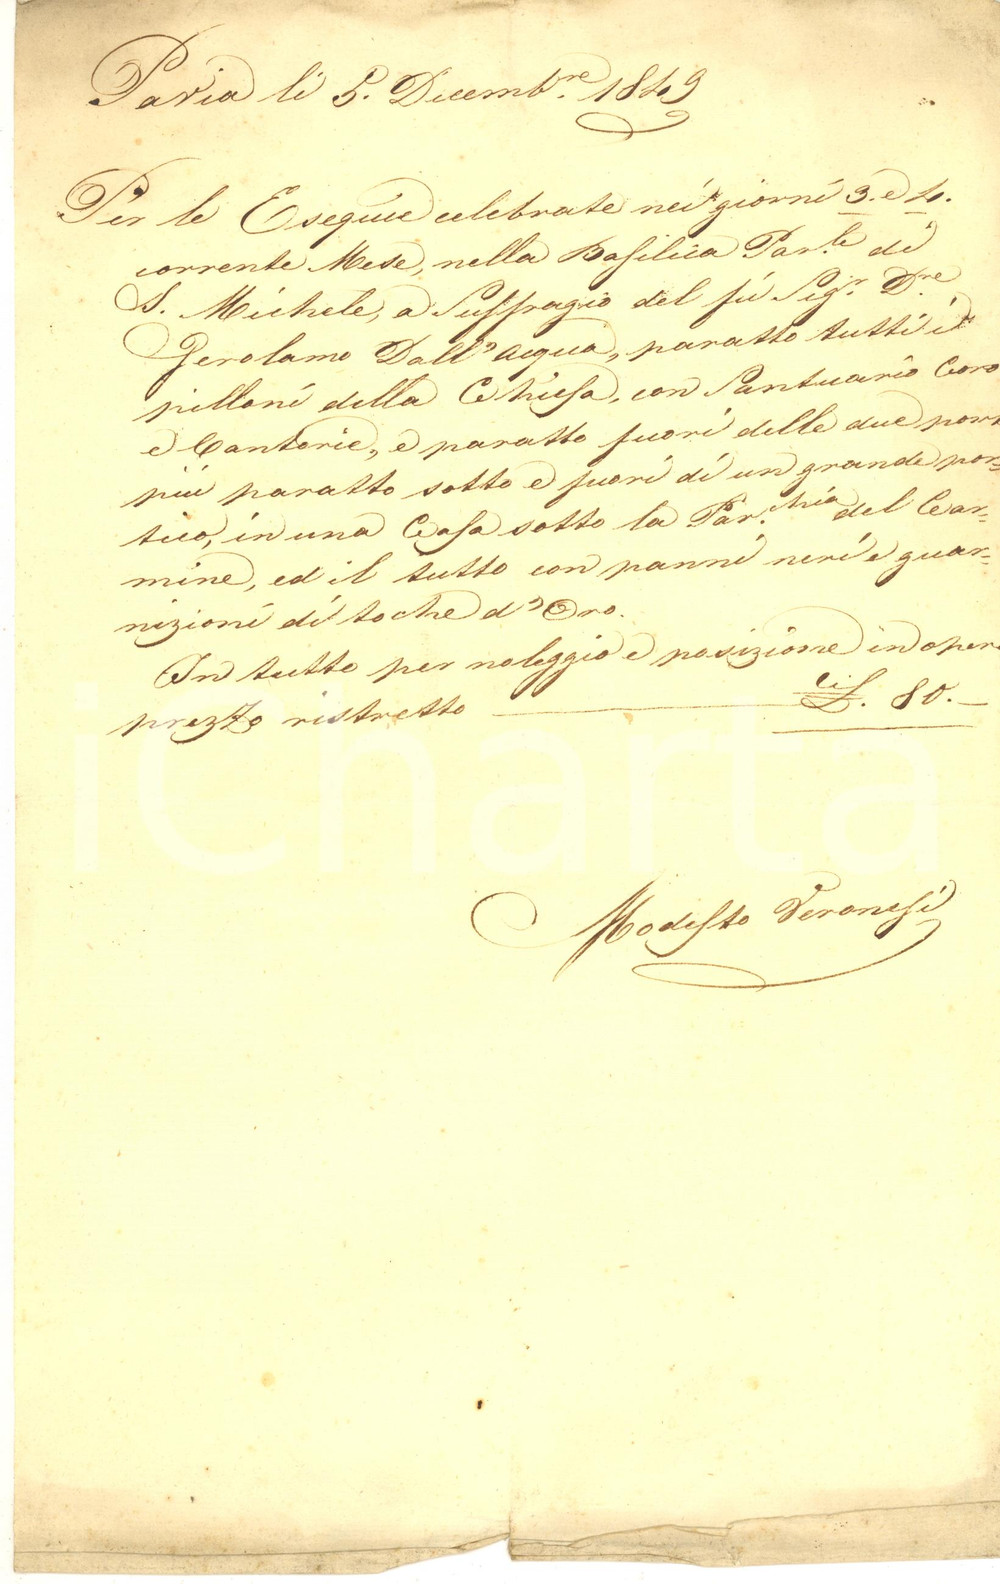 Pavia li 5. Decemb.re 1849
Per le Esequie celebrate nei giorni 3. e 4.
corrente Mese, nella Basilica Par.le di
S. Michele, a Suffragio del fù Sig.r D.re
Gerolamo Dall' Acqua, paratto tutti i
pilloni della Chiesa, con Santuario Coro
e Cantorie, e paratto fuori delle due port
più paratto sotto e fuori di un grande por=
tico, in una Casa sotto la Par.chia del Car=
mine, ed il tutto con panni neri e guar=
nizioni di toche d'Oro.
In tutto per noleggio e posizione in oper
prezzo ristretto L. 80.—
Modesto Veronesi
iCharta